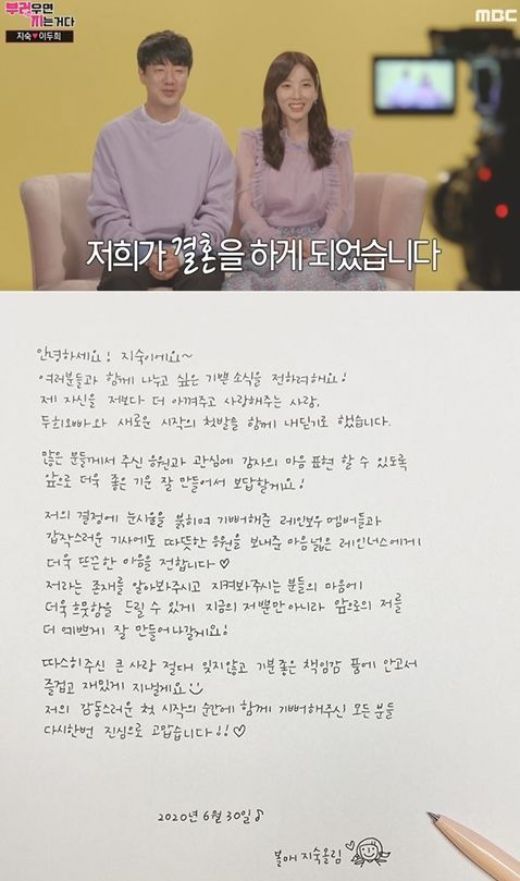 부러우면 지는거다
지숙♥이두희
MBC
저희가 결혼을 하게 되었습니다
안녕하세요! 지숙이에요~
여러분들과 함께 나누고 싶은 기쁜 소식을 전하려해요!
제 자신을 저보다 더 아껴주고 사랑해주는 사람,
두희오빠와 새로운 시작의 첫발을 함께 내딛기로 했습니다.
많은 분들께서 주신 응원과 관심에 감사의 마음 표현 할 수 있도록
앞으로 더욱 좋은 기운 잘 만들어서 보답할게요!
저의 결정에 눈시울을 붉히며 기뻐해준 레인보우 멤버들과
갑작스러운 기사에도 따뜻한 응원을 보내준 마음넓은 레인너스에게
더욱 뜨끈한 마음을 전합니다♡
저라는 존재를 알아봐주시고 지켜봐주시는 분들의 마음에
더욱 흐뭇함을 드릴 수 있게 지금의 저뿐만아니라 앞으로의 저를
더 예쁘게 잘 만들어나갈게요!
따스히주신 큰 사랑 절대 잊지않고 기분좋은 책임감 품에 안고서
즐겁고 재밌게 지낼게요
저의 감동스러운 첫 시작의 순간에 함께 기뻐해주신 모든 분들
다시한번 진심으로 고맙습니다!!♡
2020년 6월 30일♪
지숙올림♡